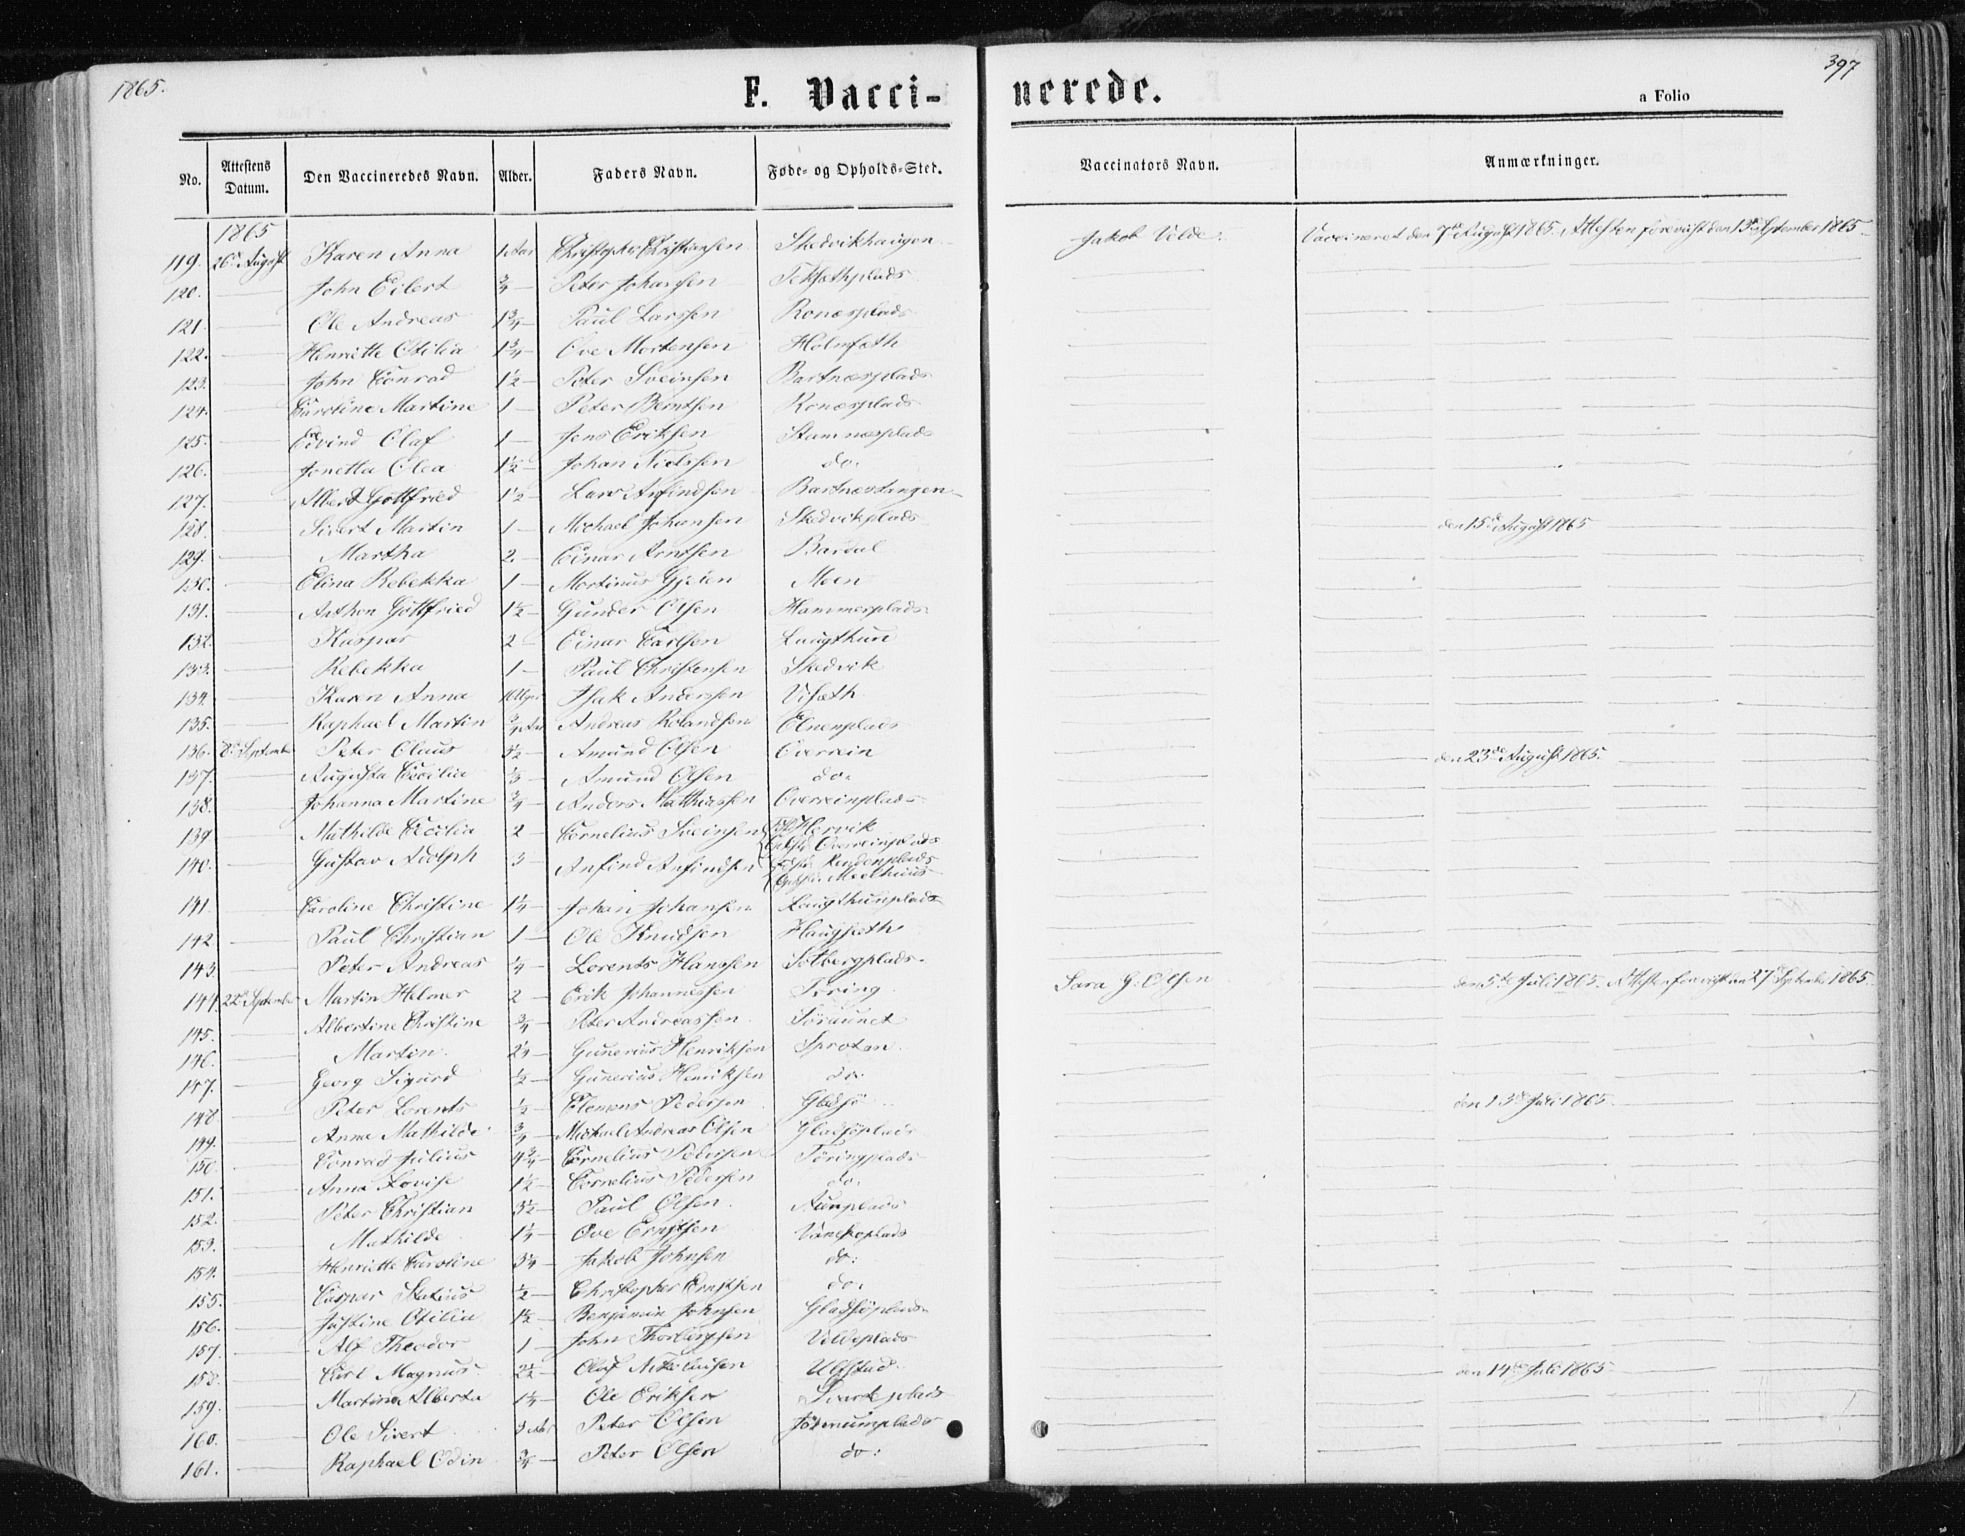 1865.
F. Vacci- nerede.
a Folio
397
No. Attestens Datum. Den Vaccineredes Navn. Alder. Faders Navn. Føde- og Opholds-Sted. Vaccinators Navn. Anmærkninger.
1865
119. 26de August Karen Anna 1 Aar Christopher Christiansen Skedvikhaugen Jakob Velde. Vaccineret den 7de August 1865. Attesten forevist den 13de September 1865.
120. — John Eilert 3/4 — Peter Johansen
121. — Ole Andreas 1 3/4 — Paul Larssen Ronæsplads
122. — Henriette Otilia 1 3/4 — Ove Mortensen Holmsæth
123. — John Conrad 1 1/2 — Peter Sveinsen Bartnæsplads
124. — Caroline Martine 1 — Peter Berntsen Ronæsplads
125. — Edvind Olaf 1 — Jens Eriksen Stamnæsplads
126. — Jonetta Olea 1 1/2 — Johan Nielssen do.
127. — Albert Gottfried 1 1/2 — Lars Anfindsen Bartnæstangen
128. — Sivert Martin 1 — Michael Johansen Skedvikplads den 15de August 1865
129. — Martha 2. — Einar Arntsen Bardal
130. — Elina Rebekka 1 — Mortinus Moen
131. — Anthon Gottfried 1 1/2 — Gunder Olsen Hammerplads
132. — Kaspar 2 — Einar Carlsen Langthun
133. — Rebekka 1 — Paul Christensen Skedvik
134. — Karen Anna Isak Anderssen Visæth
135. — Raphael Martin 3/4 Aar Andreas Rolandsen
136. 8de September Peter Olaus 3 1/2 — Amund Olsen Overrein den 23de August 1865.
137. — Augusta Cecilia Amund Olsen do.
138. — Johanna Martine 3/4 — Anders Mathiassen Overreinplads
139. — Mathilde Cecilia 2 — Cornelius Sveinsen Hervik
Overreinplads
140. — Gustav Adolph 3 — Anfind Anfindsen
141. — Caroline Christine 1 1/4 — Johan Johansen Langthunplads
142 — Paul Christian 1 — Ole Knudsen Haugsæth
143. — Peter Andreas 1/4 — Lorents Hanssen Solbergplads
144. 22de September Martin Helmer 2 — Erik Johannessen Tøring Sara G. Olsen den 5te Juli 1865. Attesten forevist den 27de September 1865.
145. — Albertine Christine 3/4 — Peter Andreassen Søraunet
146. — Martin 2 1/4 — Gunerius Henriksen Sprotan
147. — Georg Sigurd 1/2 — Gunerius Henriksen do.
148 — Peter Lorents 1/2 — Clemens Pedersen Gladsø den 13de Juli 1865.
149. — Anna Mathilde 3/4 — Michael Andreas Olsen Gladsøplads
150 — Conrad Julius 4 3/4 — Cornelius Pedersen Tøringplads
151. — Anna Lovise 1 1/2 — Cornelius Pedersen do.
152. — Peter Christian 3 1/2 — Paul Olsen Aunplads
153. — Mathilde 1 1/4 — Ove Erntsen
154. — Henriette Caroline 3 1/4 — Jakob Johnsen do:
155. — Caspar Statius 1/2 — Christopher Erntsen do.
156. — Justine Otilia 1 1/2 — Benjamin Johnsen Gladsøplads
157. — Alf Theodor 1 — John Thorbergsen Veldeplads
158. — Carl Magnus 2 1/2 — Olaf Nikolaisen Ulfstad den 14de Juli 1865.
159. — Martina Alberta 1 1/4 — Ole Eriksen plads
160. — Ole Sivert 3 Aar Peter Olsen Jørnumplads
161. — Raphael Odin 3/4 Peter Olsen do: